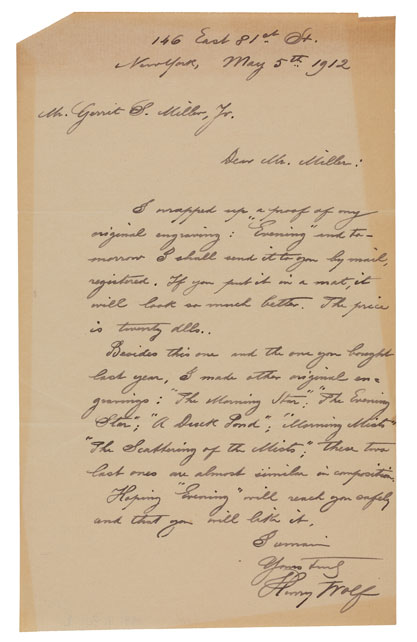 146 East 81st St.
New York, May 5th 1912
Mr. Gerrit S. Miller, Jr.
Dear Mr. Miller:
I wrapped up a proof of my
original engraving: "Evening" and to-
morrow I shall send it to you by mail,
registered. If you put it in a mat, it
will look so much better. The price
is twenty dlls..
Besides this one and the one you bought
last year, I made other original en-
gravings: "The Morning Star", "The Evening
Star"; "A Duck Pond"; "Morning Mists"
"The Scattering of the Mists"; these two
last ones are almost similar in composition.
Hoping "Evening" will reach you safely
and that you will like it,
I remain
Yours truly
Henry Wolf